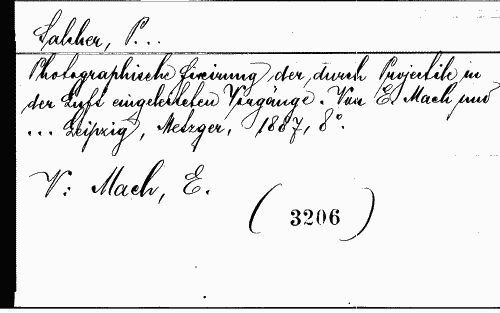 Salcher, P...
Photographische Fixirung der durch Projectile in
der Luft eingeleiteten Vorgänge. Von E. Mach und
... Leipzig, Metzger, 1887, 8°.
V: Mach, E.
(3206)